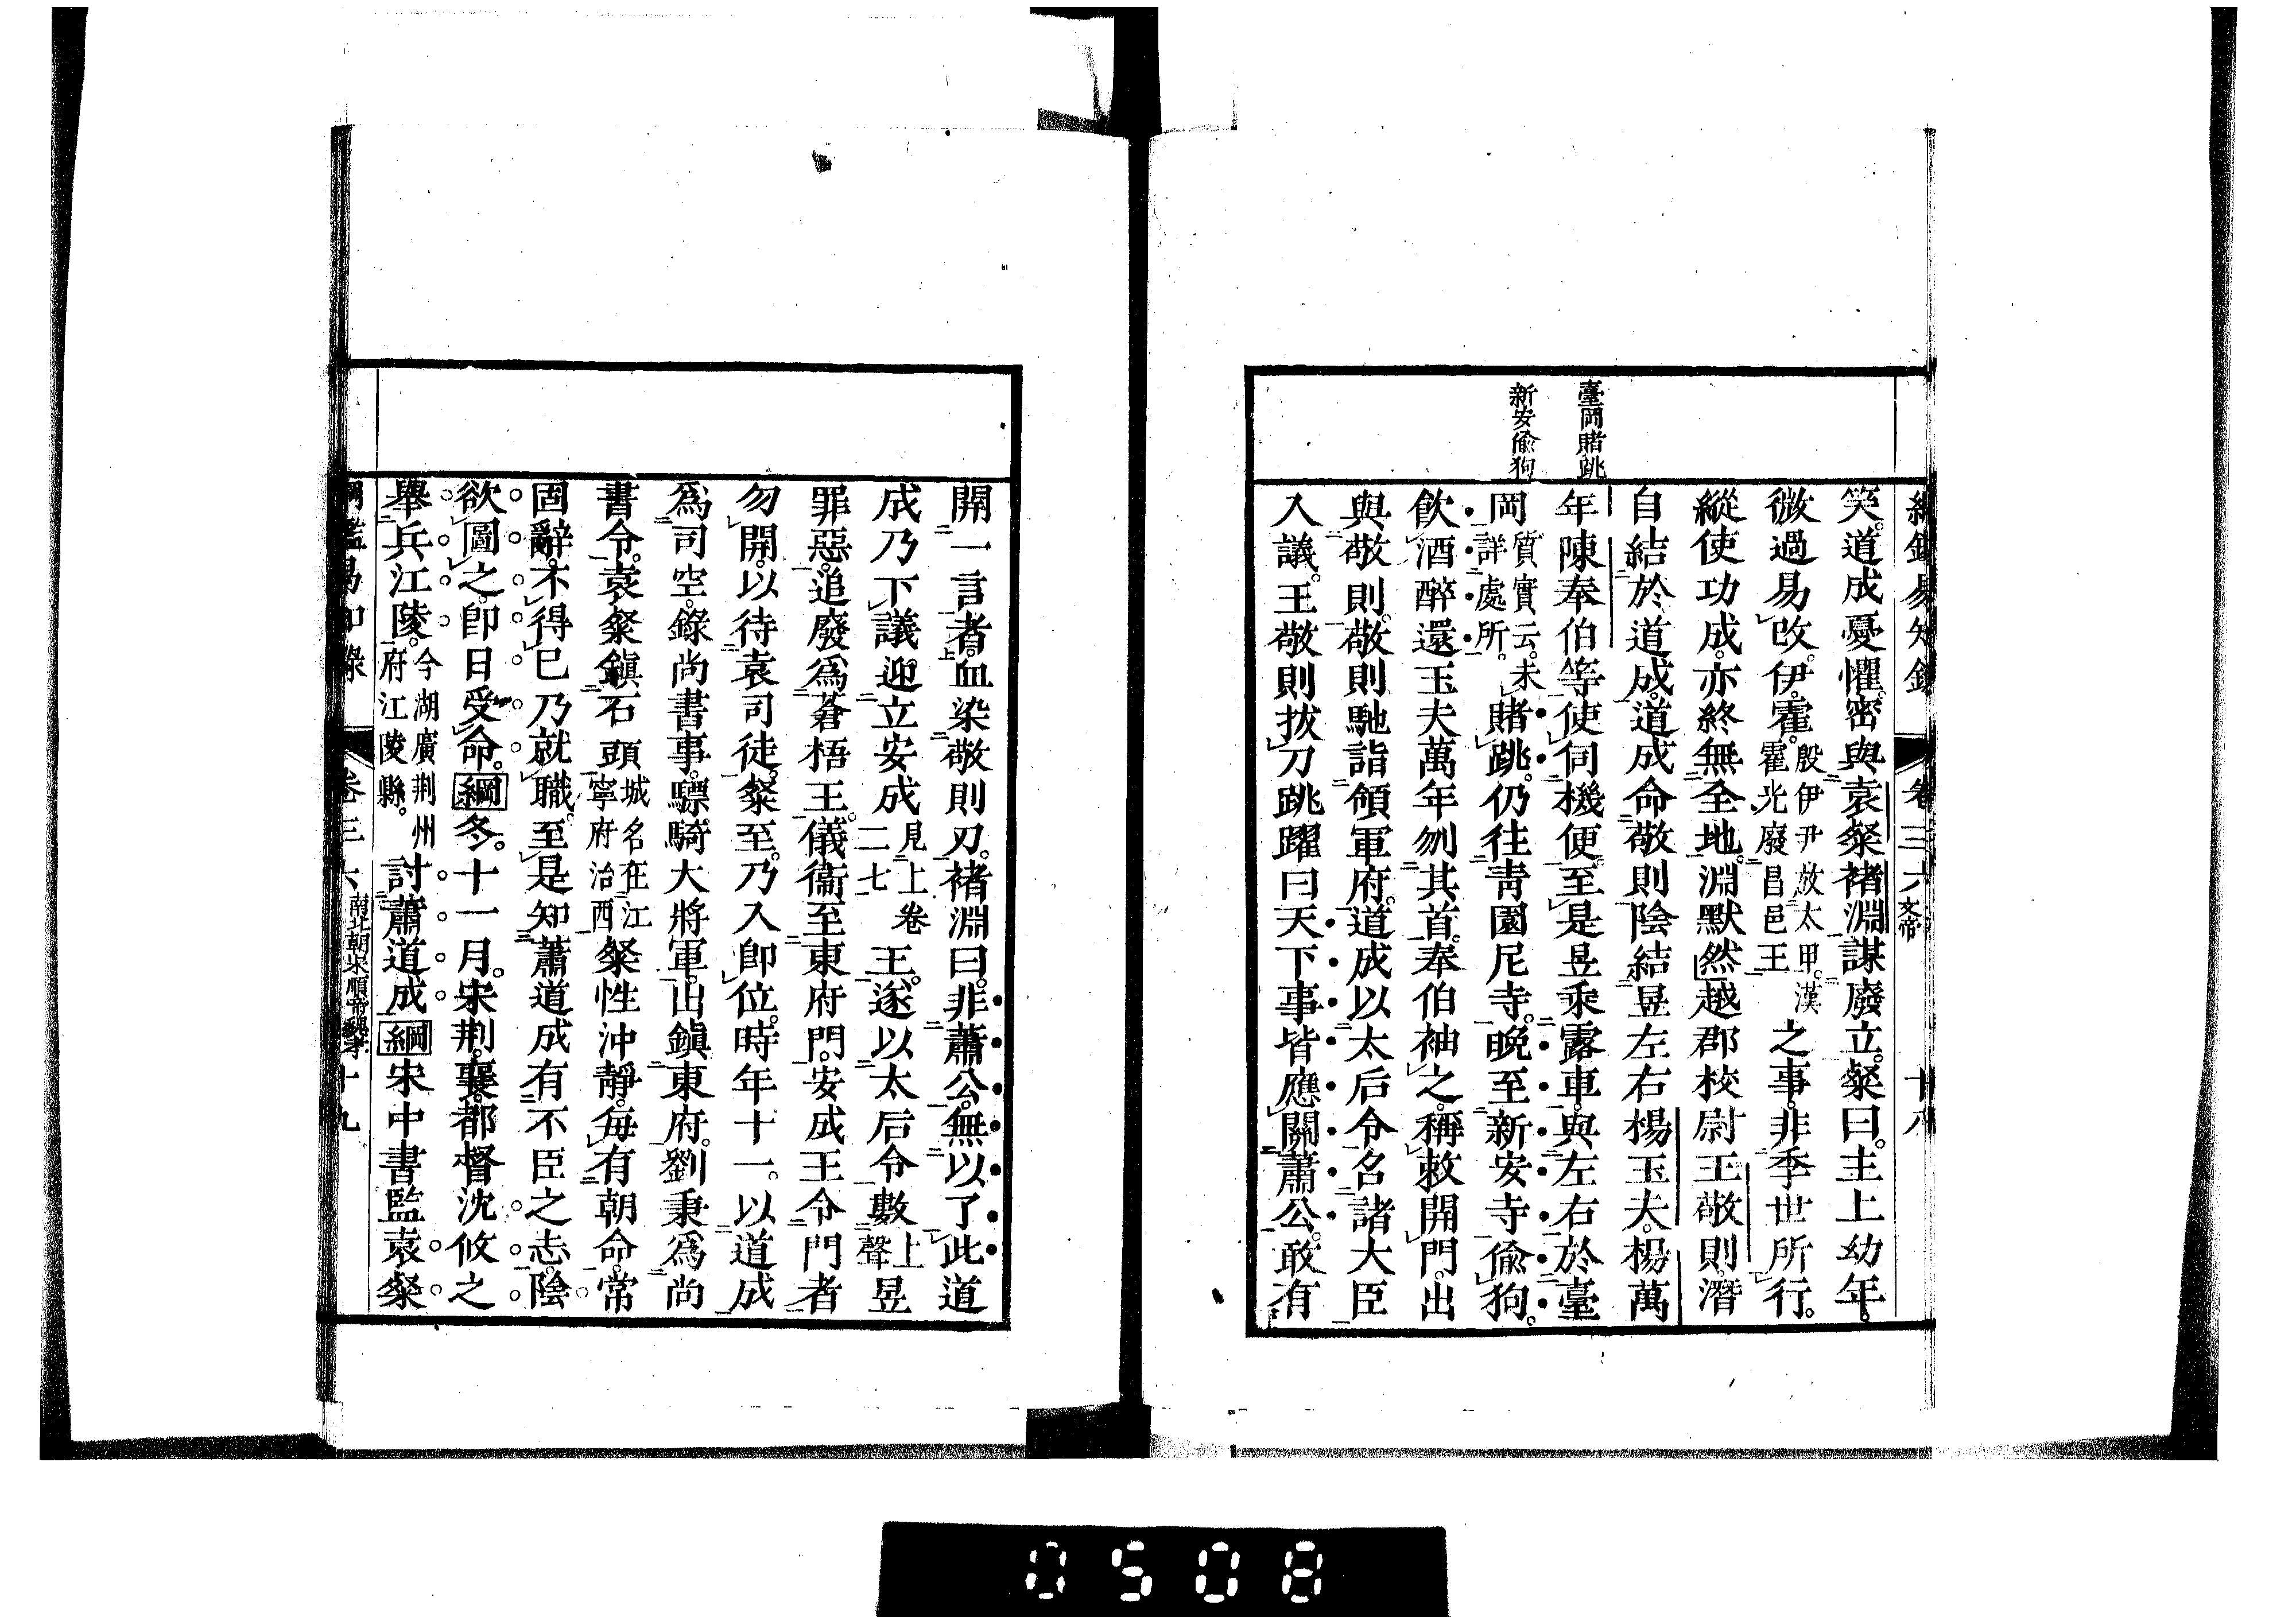 綱鑑易知錄 卷三六 文帝 十八
臺岡賭跳
新安偸狗
笑。道成憂懼。密與袁粲褚淵謀廢立。粲曰。主上幼年。
微過易改。伊霍。殷伊尹放太甲。漢霍光廢昌邑王之事。非季世所行。
縱使功成。亦終無全地。淵默然。越郡校尉王敬則。潛
自結於道成。道成命敬則陰結昱左右楊玉夫。楊萬
年陳奉伯等。使伺機便。至是昱乘露車。與左右於臺
岡質實云。未詳處所。賭跳。仍往靑園尼寺。晩至新安寺偸狗。
飮酒醉還。玉夫萬年刎其首。奉伯袖之。稱敕開門。出
與敬則。敬則馳詣領軍府。道成以太后令召諸大臣
入議。王敬則拔刀跳躍曰。天下事皆應關蕭公。敢有
開一言者。血染敬則刃。褚淵曰。非蕭公。無以了此。道
成乃下議。迎立安成見上卷二七王。遂以太后令數上聲昱
罪惡。追廢爲蒼梧王。儀衞至東府門。安成王令門者
勿開。以待袁司徒。粲至。乃入卽位。時年十一。以道成
爲司空。錄尚書事。驃騎大將軍。出鎭東府。劉秉爲尚
書令。袁粲鎭石頭城名在江寧府治西粲性沖靜。每有朝命。常
固辭。不得已乃就職。至是知蕭道成有不臣之志。陰
欲圖之。卽日受命。綱冬。十一月。宋荆。襄。都督沈攸之
舉兵江陵。今湖廣荆州府江陵縣。討蕭道成綱宋中書監袁粲
綱鑑易知錄 卷三六 南北朝宋順帝 十九